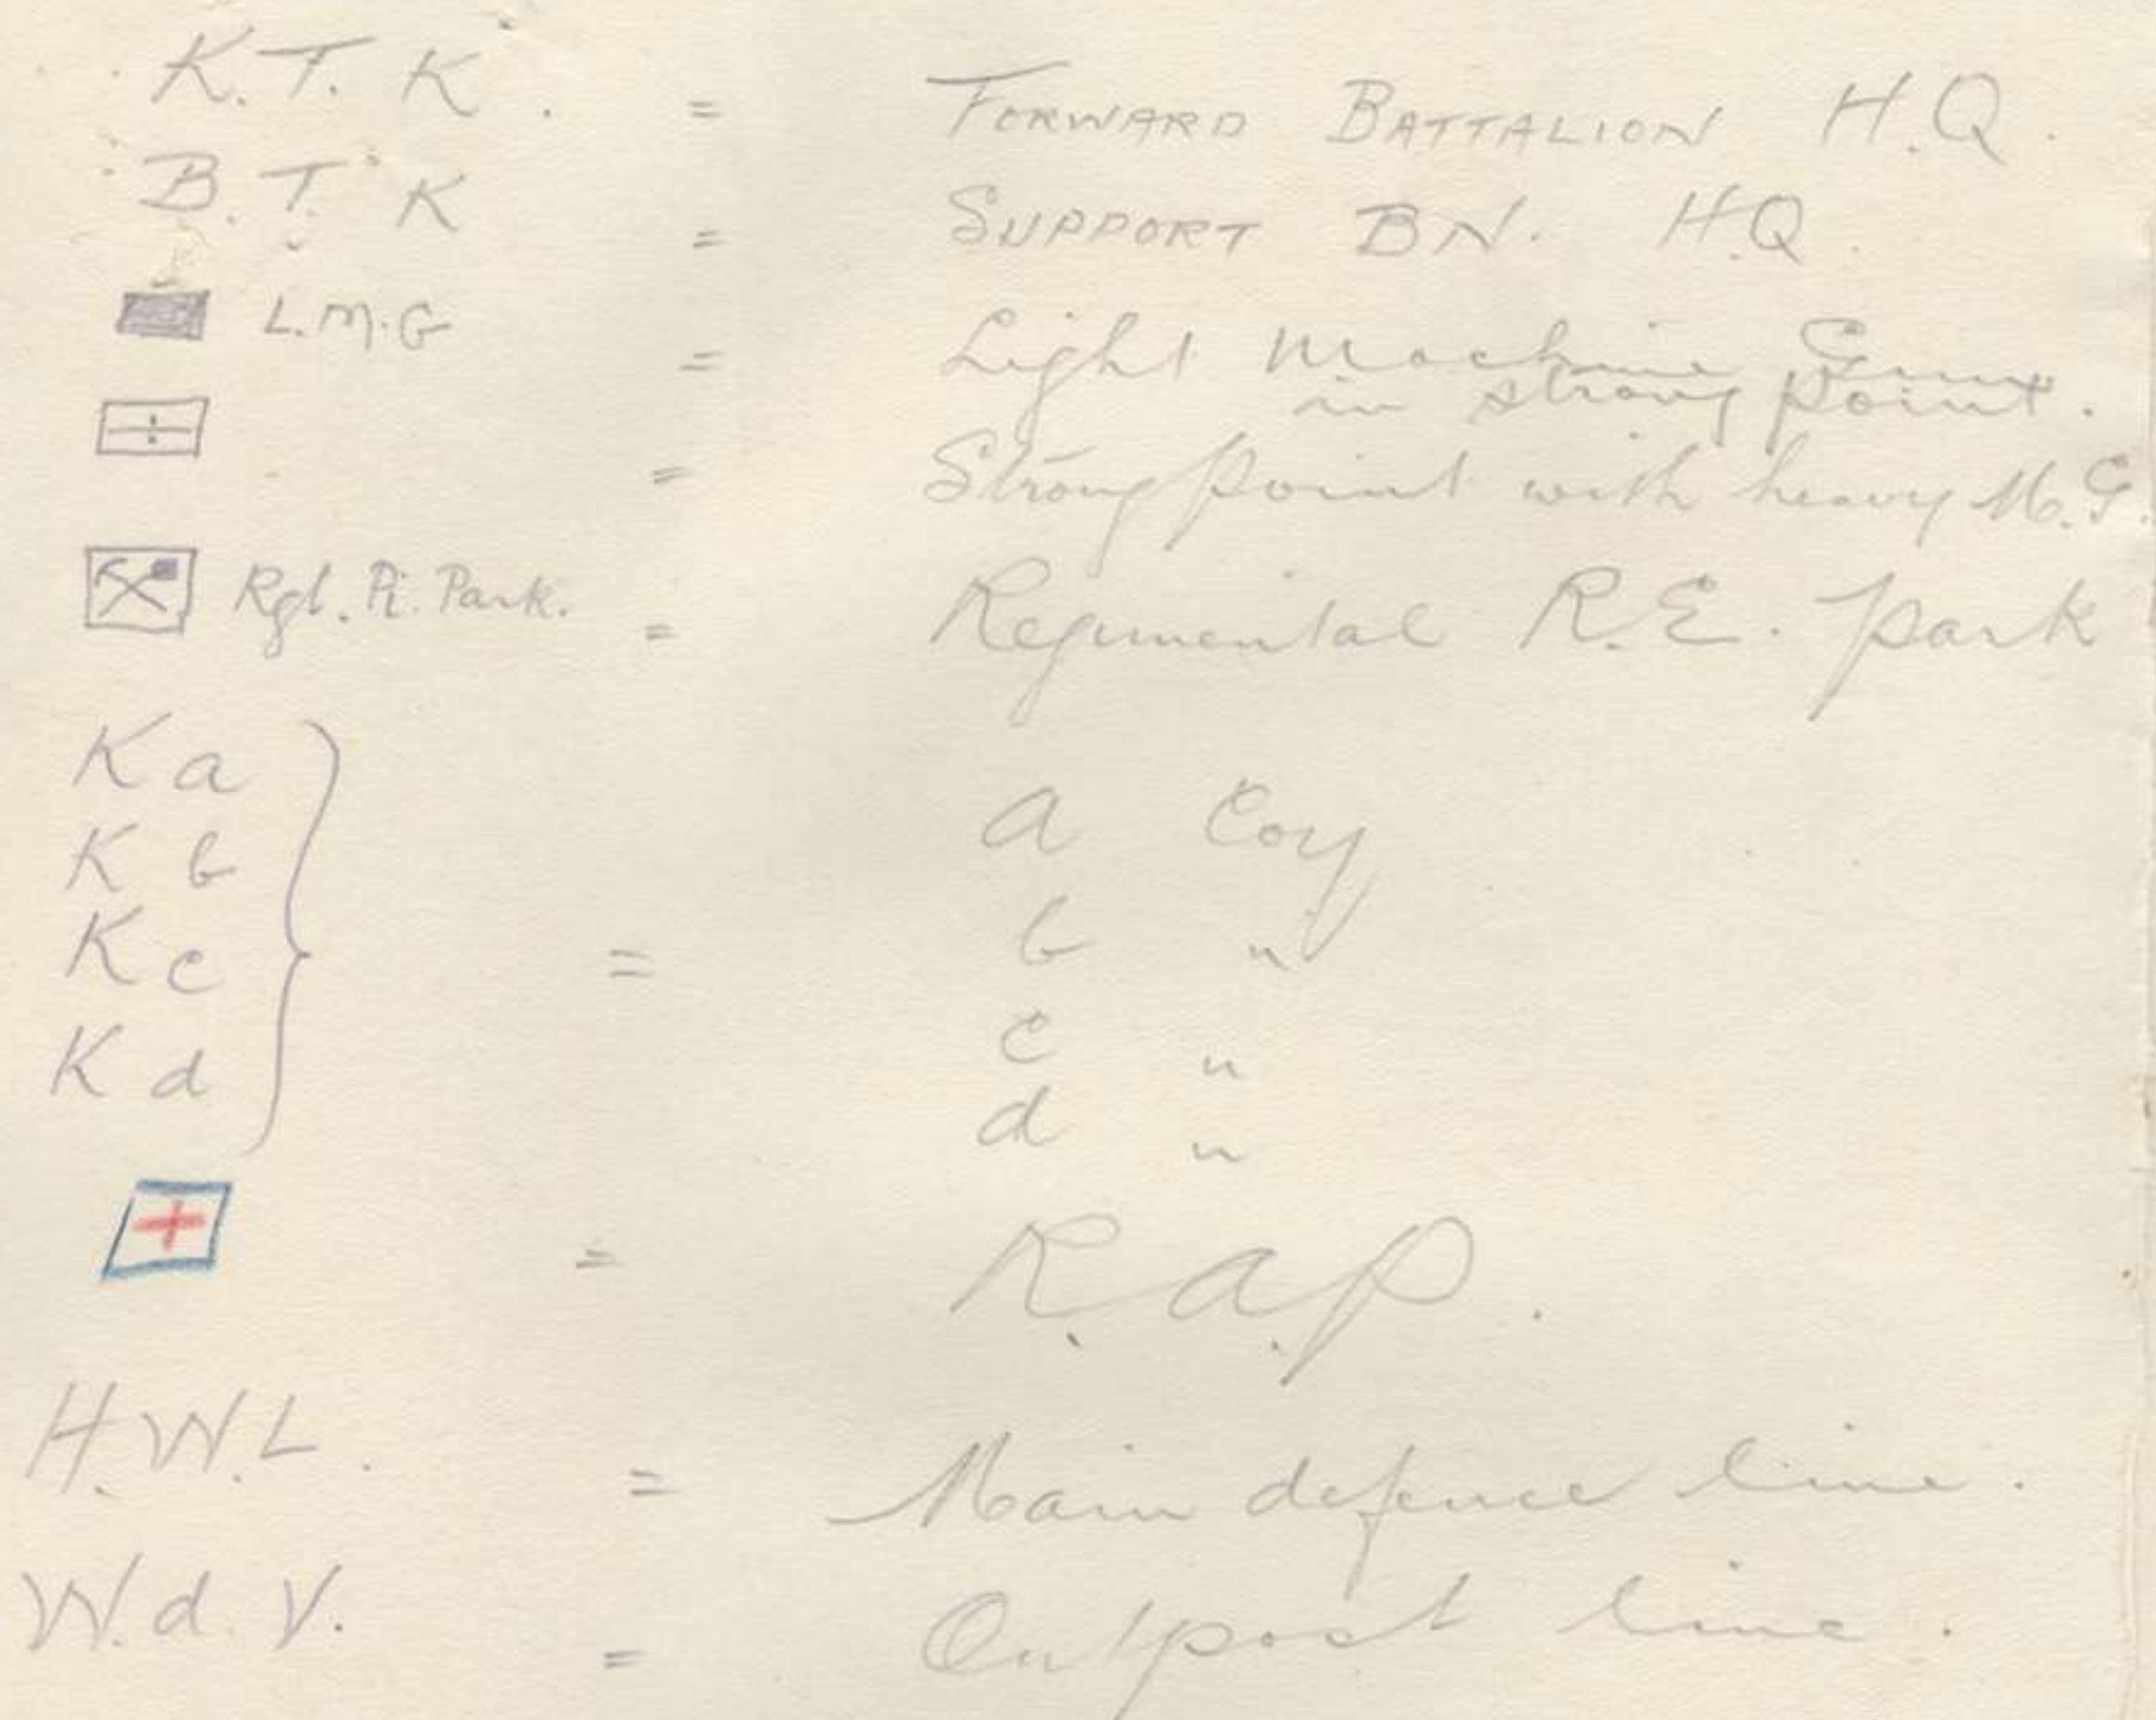 K.T.K. = FORWARD BATTALION H.Q.
B.T.K = SUPPORT BN. H.Q.
L.M.G = Light Machine Guns
in strong point.
= Strong point with heavy M.G.
Rgl. Pi. Park. = Regimental R.E. park
K a
K b
K c
K d
= a Coy
b "
c "
d "
= R.A.P.
H.W.L. = Main defence line.
W.d.V. = Outpost line.